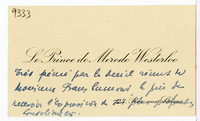 9333
Le Prince de Merode Westerloo
très peiné par le décès
Monsieur Franz Cumont, le prie de
recevoir l'expression de
condoléances